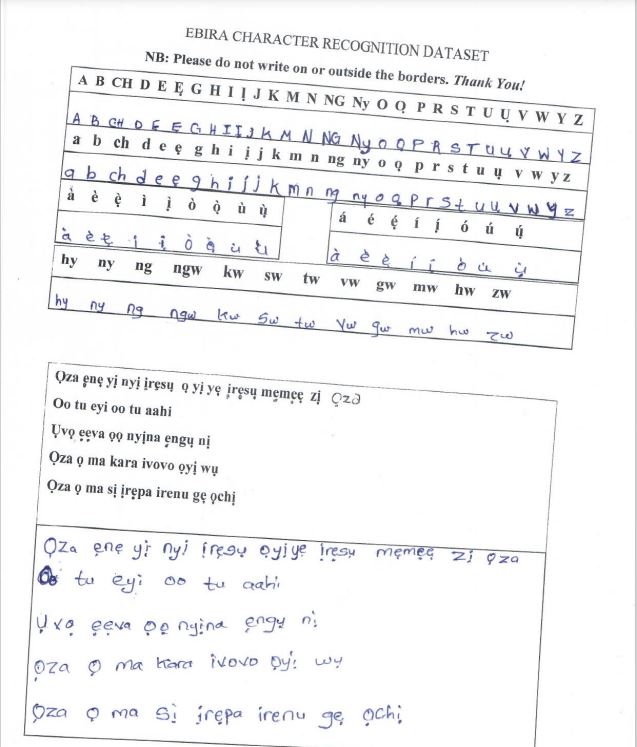 EBIRA CHARACTER RECOGNITION DATASET
NB: Please do not write on or outside the borders. Thank You!
A B CH D E Ẹ G H I Ị J K M N NG Ny O Ọ P R S T U Ụ V W Y Z
A B CH D E Ẹ G H I Ị J K M N NG Ny O Ọ P R S T U Ụ V W Y Z
a b ch d e ẹ g h i ị j k m n ng ny o ọ p r s t u ụ v w y z
a b ch d e ẹ g h i ị j k m n ng ny o ọ p r s t u ụ v w y z
à è ẹ̀ ì ị̀ ò ọ̀ ù ụ̀
á é ẹ́ í ị́ ó ú ụ́
à è ẹ̀ ì ị̀ ò ọ̀ ù ụ̀
à è ẹ̀ í í ò ù ụ̀
hy ny ng ngw kw sw tw vw gw mw hw zw
hy ny ng ngw kw sw tw vw gw mw hw zw
Ọza ẹnẹ yị nyị ịrẹsụ ọ yị yẹ ịrẹsụ mẹmẹẹ zị Ọza
Oo tu eyi oo tu aahi
Ụvọ ẹẹva ọọ nyịna ẹngụ nị
Ọza ọ ma kara ivovo ọyị wụ
Ọza ọ ma sị ịrẹpa irenu gẹ ọchị
Ọza ẹnẹ yị nyị ịrẹsụ ọyịyẹ ịrẹsụ mẹmẹẹ zị ọza
Oo tu eyi oo tu aahi
Ụvọ ẹẹva ọọ nyịna ẹngụ nị
Ọza Ọ ma kara ivovo ọyị wụ
Ọza Ọ ma sị ịrẹpa irenu gẹ ọchị